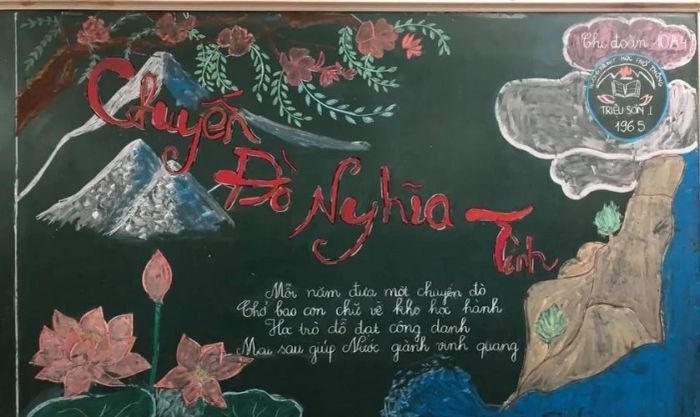 Chi đoàn 10A4
TRƯỜNG TRUNG HỌC PHỔ THÔNG
TRIỆU SƠN 1
1965
Chuyến
Đò Nghĩa
Tình
Mỗi năm đưa một chuyến đò
Chở bao con chữ về kho học hành
Học trò đỗ đạt công danh
Mai sau giúp Nước giành vinh quang